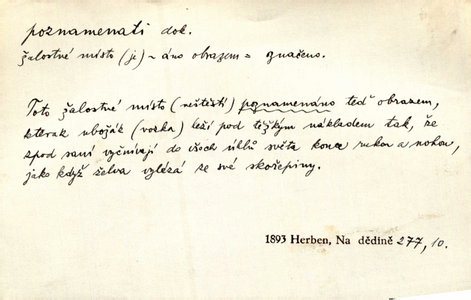 poznamenati dok.
žalostné místo (je) ~ áno obrazem = značeno.
Toto žalostné místo (neštěstí) poznamenáno teď obrazem,
kterak ubožák (vozka) leží pod těžkým nákladem tak, že
zpod saní vyčnívají do všech úhlů světa konce rukou a nohou,
jako když želva vylézá ze své skořepiny.
1893 Herben, Na dědině 277, 10.